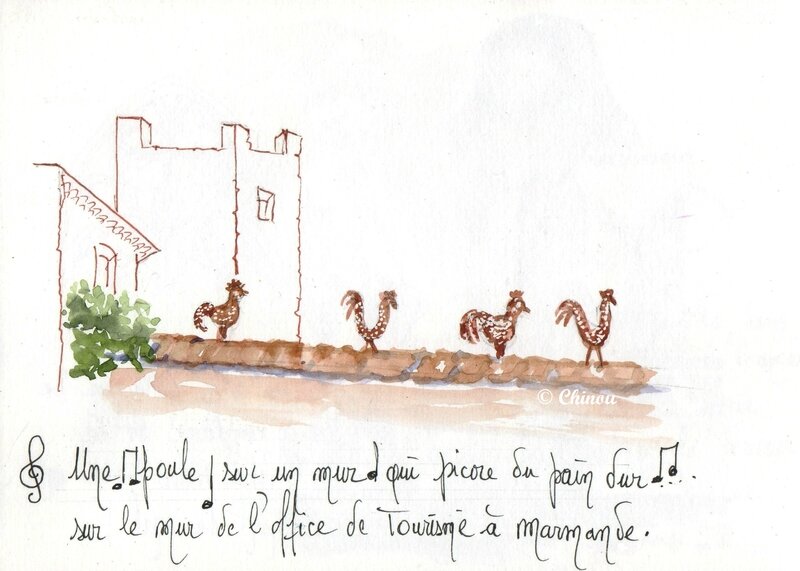 © Chinou
Une poule sur un mur qui picore du pain dur...
sur le mur de l'office de Tourisme à Marmande.